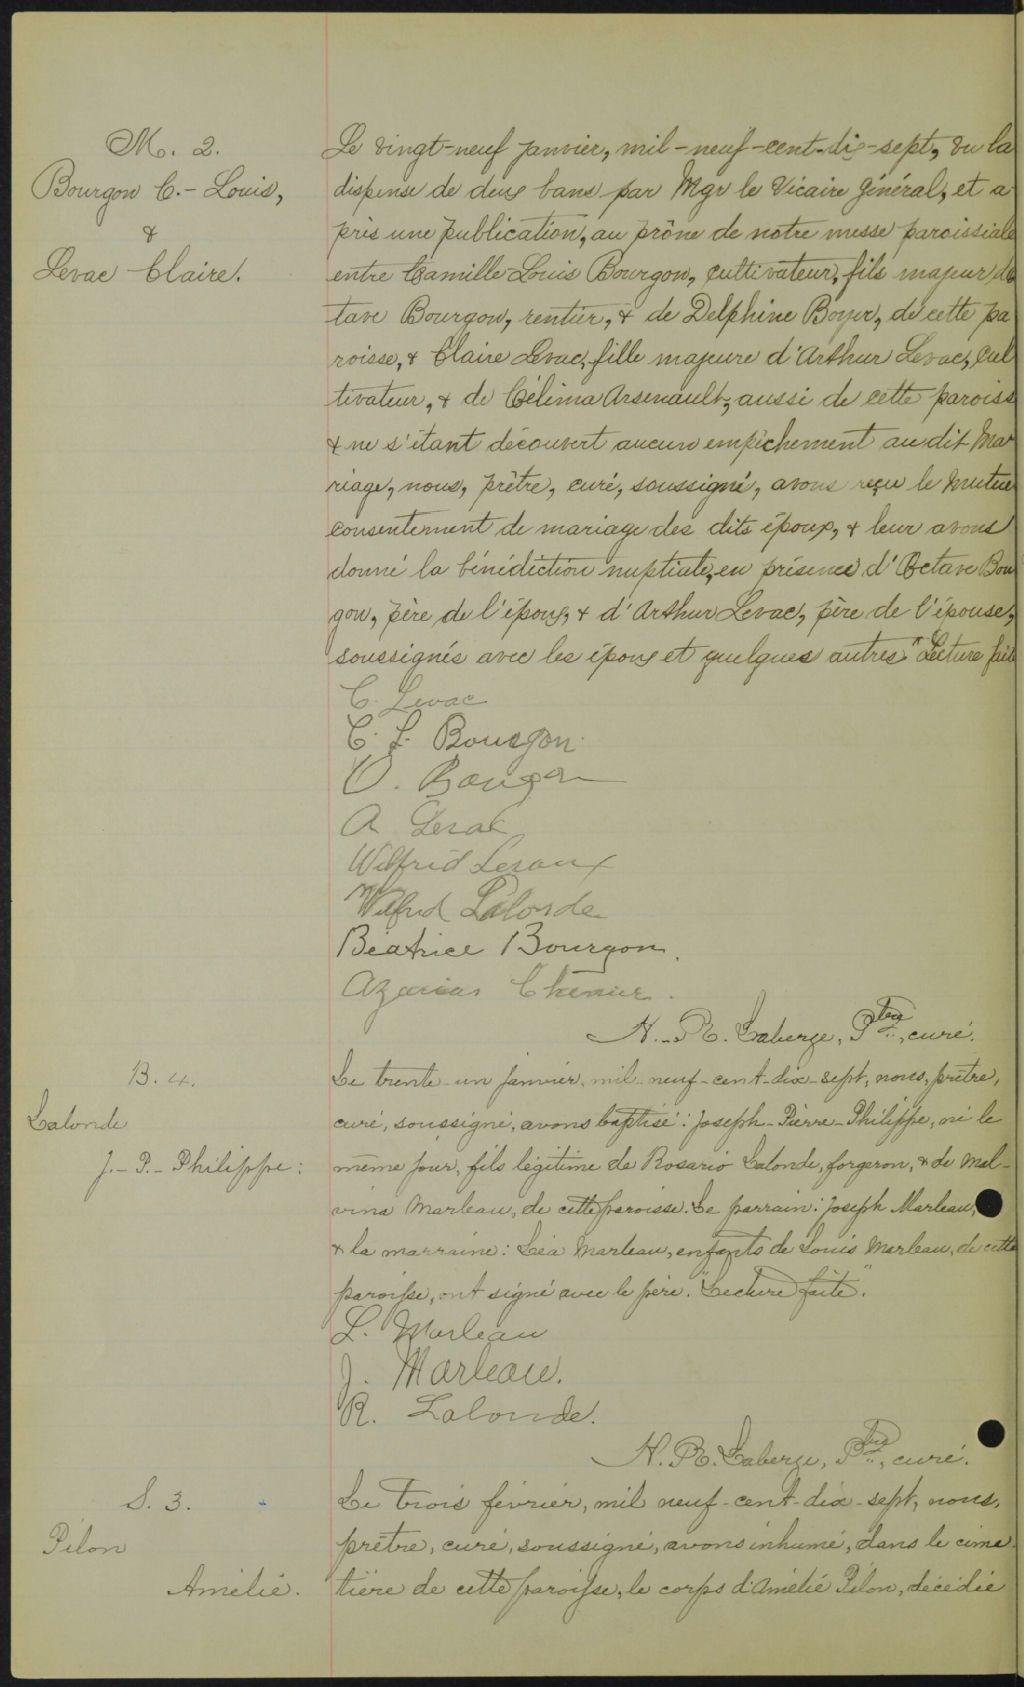 M. 2.
Bourgon C.- Louis,
&
Levac Claire.
Le vingt-neuf janvier, mil-neuf-cent-dix-sept, vu la
dispense de deux bans par Mgr le Vicaire Général, et a
près une publication, au prône de notre messe paroissiale
entre Camille Louis Bourgon, cultivateur, fils majeur d'Oc
tave Bourgon, rentier, & de Delphine Boyer, de cette pa
roisse, & Claire Levac, fille majeure d'Arthur Levac, cul
tivateur, & de Célima Arsenault, aussi de cette paroiss
& ne s'étant découvert aucun empêchement au dit Ma
riage, nous, prêtre, curé, soussigné, avons reçu le mutue
consentement de mariage des dits époux, & leur avons
donné la bénédiction nuptiale, en présence d'Octave Bou
gon, père de l'époux, & d'Arthur Levac, père de l'épouse,
soussignés avec les époux et quelques autres. "Lecture faite
C. Levac
C. L. Bourgon.
O. Bourgon
A Levac
Wilfrid Leroux
Wilfrid Lalonde
Béatrice Bourgon.
Azarias Chénier.
H.-R. Laberge, Ptre, curé.
B. 4.
Lalonde
J.-P.-Philippe:
Le trente-un janvier, mil-neuf-cent-dix-sept, nous, prêtre,
curé, soussigné, avons baptisé: Joseph-Pierre-Philippe, né le
même jour, fils légitime de Rosario Lalonde, forgeron, & de Mal-
vina Marleau, de cette paroisse. Le parrain: Joseph Marleau,
& la marraine: Léa Marleau, enfants de Louis Marleau, de cette
paroisse, ont signé avec le père. "Lecture faite".
L. Marleau
J. Marleau.
R. Lalonde.
H. R. Laberge, Ptre, curé.
S. 3.
Pilon
Amélie.
Le trois février, mil neuf-cent-dix-sept, nous,
prêtre, curé, soussigné, avons inhumé, dans le cime
tière de cette paroisse, le corps d'Amélie Pilon, décédée